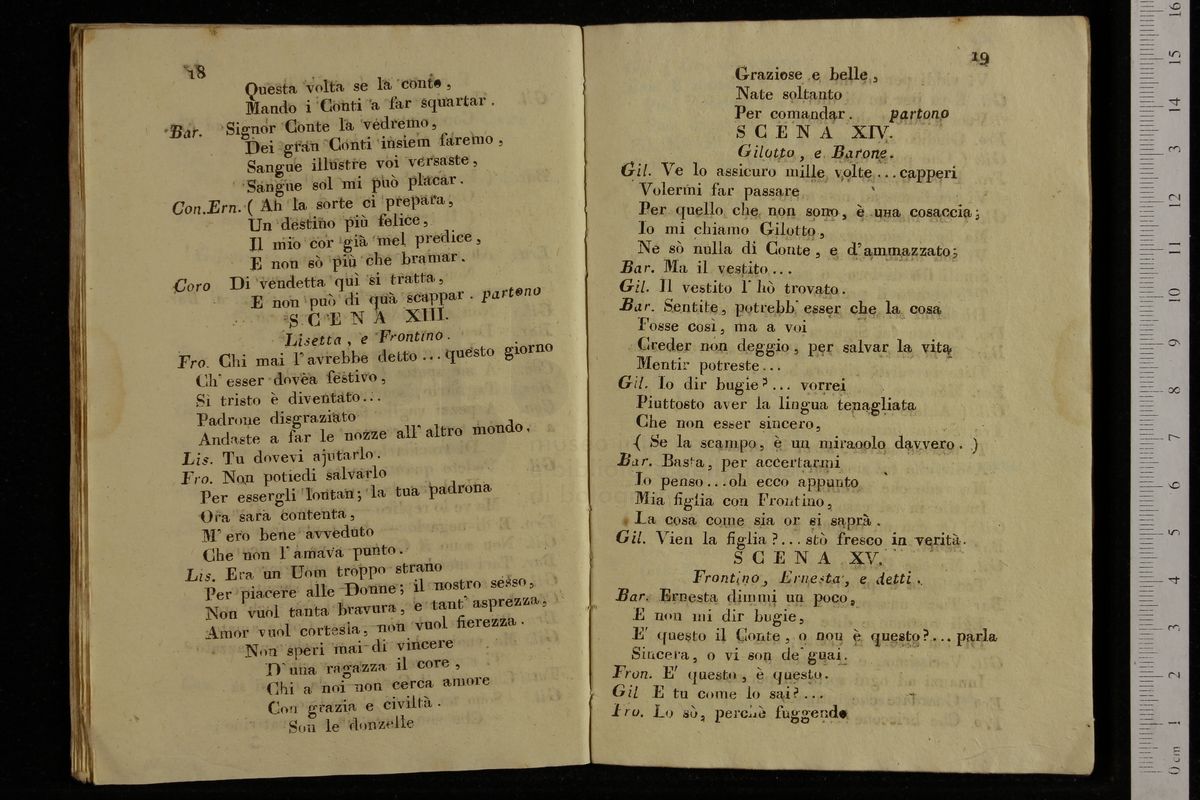 18
Questa volta se la conte,
Mando i Conti a far squartar.
Bar. Signor Conte la vedremo,
Dei gran Conti insiem faremo,
Sangue illustre voi versaste,
Sangue sol mi può placar.
Con.Ern. ( Ah la sorte ci prepara,
Un destino più felice,
Il mio cor già mel predice,
E non sò più che bramar.
Coro Di vendetta quì si tratta,
E non può di quà scappar. partono
SCENA XIII.
Lisetta, e Frontino.
Fro. Chi mai l'avrebbe detto... questo giorno
Ch' esser dovèa festivo,
Si tristo è diventato...
Padrone disgraziato
Andaste a far le nozze all' altro mondo.
Lis. Tu dovevi ajutarlo.
Fro. Non potiedi salvarlo
Per essergli lontan; la tua padrona
Ora sarà contenta,
M' ero bene avveduto
Che non l'amava punto.
Lis. Era un Uom troppo strano
Per piacere alle Donne; il nostro sesso,
Non vuol tanta bravura, e tant' asprezza,
Amor vuol cortesia, non vuol fierezza.
Non speri mai di vincere
D' una ragazza il core,
Chi a noi non cerca amore
Con grazia e civiltà.
Son le donzelle
19
Graziose e belle,
Nate soltanto
Per comandar. partono
SCENA XIV.
Gilotto, e Barone.
Gil. Ve lo assicuro mille volte... capperi
Volermi far passare
Per quello che non sono, è una cosaccia;
Io mi chiamo Gilotto,
Ne sò nulla di Conte, e d'ammazzato;
Bar. Ma il vestito...
Gil. Il vestito l' hò trovato.
Bar. Sentite, potrebb' esser che la cosa
Fosse così, ma a voi
Creder non deggio, per salvar la vita
Mentir potreste...
Gil. Io dir bugie?... vorrei
Piuttosto aver la lingua tenagliata
Che non esser sincero,
( Se la scampo, è un miracolo davvero. )
Bar. Basta, per accertarmi
Io penso...oh ecco appunto
Mia figlia con Frontino,
La cosa come sia or si saprà.
Gil. Vien la figlia?... stò fresco in verità.
SCENA XV.
Frontino, Ernesta, e detti.
Bar. Ernesta dimmi un poco,
E non mi dir bugie,
E' questo il Conte, o non è questo?... parla
Sincera, o vi son de' guai.
Fron. E' questo, è questo.
Gil E tu come lo sai?...
Fro. Lo sò, perchè fuggendo
0 cm 1 2 3 4 5 6 7 8 9 10 11 12 13 14 15 16